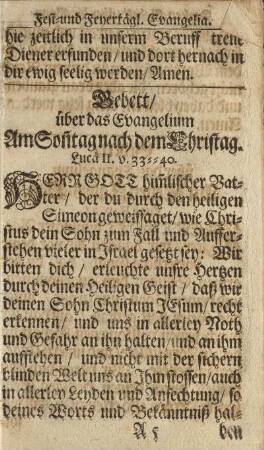 Fest-und Feyertägl. Evangelia.
hie zeitlich in unserm Beruff treue
Diener erfunden / und dort hernach in
dir ewig seelig werden / Amen.
Gebett /
über das Evangelium
Am Sonntag nach dem Christag.
Lucä II. v. 33--40.
HERR GOTT him̄lischer Vat-
ter / der du durch den heiligen
Simeon geweissaget / wie Chri-
stus dein Sohn zum Fall und Auffer-
stehen vieler in Israel gesetzt sey: Wir
bitten dich / erleuchte unsre Hertzen
durch deinen Heiligen Geist / daß wir
deinen Sohn Christum JEsum / recht
erkennen / und uns in allerley Noth
und Gefahr an ihn halten / und an ihm
aufstehen / und nicht mit der sichern
blinden Welt uns an Ihm stossen / auch
in allerley Leyden und Anfechtung / so
deines Worts und Bekänntniß hal-
A 5 ben